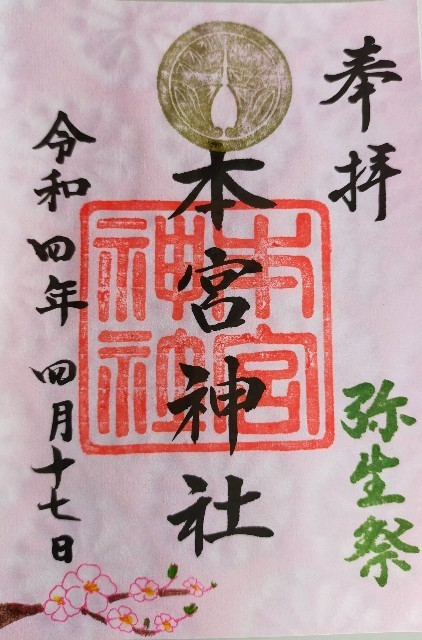 奉拝
弥生祭
本宮神社
令和四年四月十七日